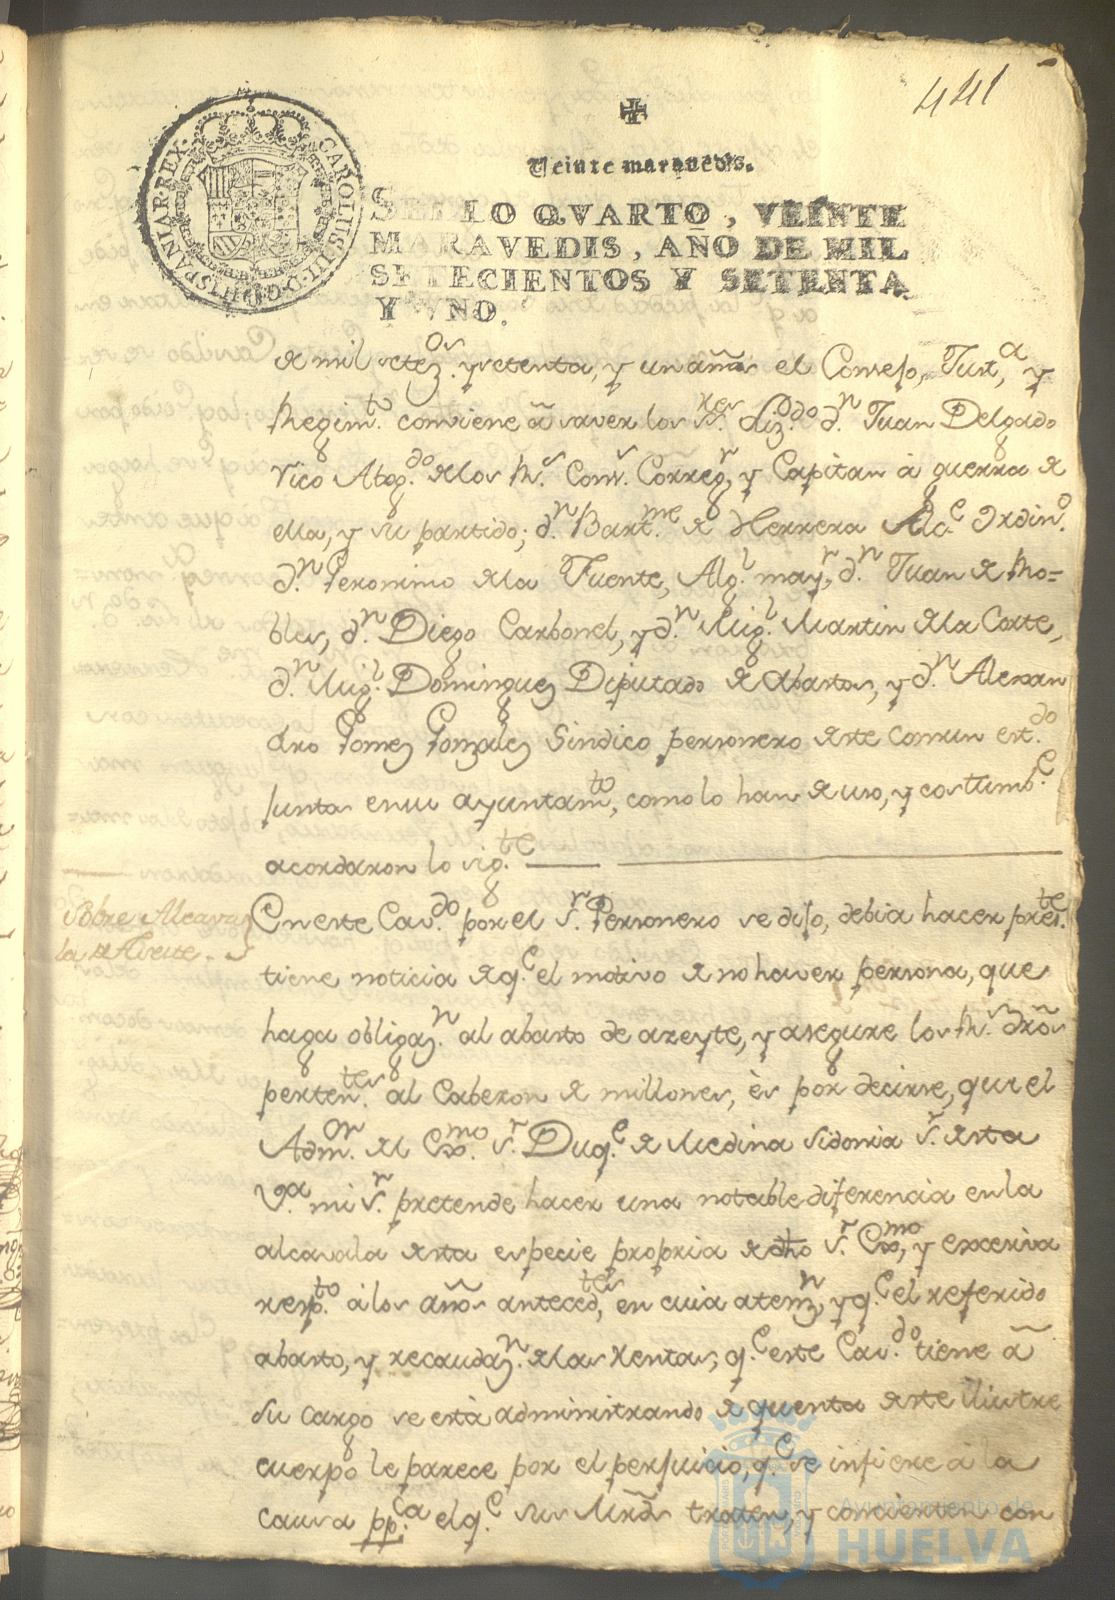 441
Veinte maravedis.
SELLO QVARTO, VEINTE
MARAVEDIS, AÑO DE MIL
SETECIENTOS Y SETENTA
Y VNO.
CAROLUS III D G HISPANIAR REX
de mil setez.os y setenta, y un años el Consejo, Just.a, y
Regim.to conviene à saver los S.res Liz.do d.n Juan Delgado
Rico Abog.do de los R.s Cons.s Correg.r, y Capitan à guerra de
ella, y su partido; d.n Bart.me de Herrera Alc.e Ordin.o
d.n Geronimo de la Fuente, Alg.l may.r, d.n Juan de Ro=
bles, d.n Diego Carbonel, y d.n Mig.l Martin de la Corte,
d.n Mig.l Dominguez Diputado de Abastos, y d.n Alexan
dro Gomez Gonzalez Sindico personero deste comun est.do
juntos en su ayuntam.to, como lo han de uso, y costumb.e
acordaron lo sig.te
Sobre Alcava
la de Aceite.
En este Cav.do por el S.r Personero se dijo, debia hacer pres.te
tiene noticia de q.e el motivo de no haver persona, que
haga obligaz.n al abasto de azeyte, y asegure los R.s dros
perten.tes al Cabezon de millones, ès por decirse, que el
Adm.or del Exmo. S.r Duq.e de Medina Sidonia S.r desta
V.a mi S.r pretende hacer una notable diferencia en la
alcavala desta especie propria de dho S.r Exmo, y excesiva
resp.to à los años anteced.tes, en cuia atenz.n, y q.e el referido
abasto, y recaudaz.n de las Rentas, q.e este Cav.do tiene à
su cargo se està administrando de quenta deste Ilustre
cuerpo le parece por el perjuicio, q.e se infiere à la
causa pp.ca el q.e sus Mrds traten, y concienten con
Ayuntamiento de
HUELVA